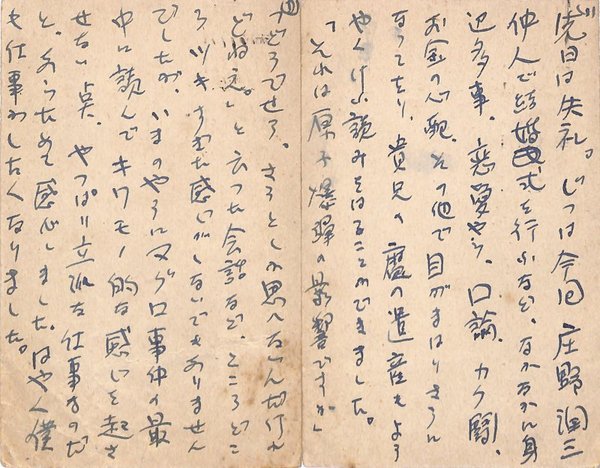 先日は失礼。じつは今回庄野潤三
仲人で結婚式を行ふなど、なかなかに身
辺多事。恋愛やら、口論、カク闘、
お金の心配、その他で目がまはりさうに
なってをり、貴兄の魔の遺産もよう
やく半ば読みをはることができました。
「それは原子爆弾の影響ですか」
「どうでせう。さうとしか思へないんだけれ
どねえ。」と云つた会話など、ところどこ
ろ
でしたが、いまのやうにマグロ事件の最
中に読んでキワモノ的な感じを起さ
せない点、やっぱり立派な仕事なのだ
と、あらためて感心しました。はやく僕
も仕事がしたくなりました。